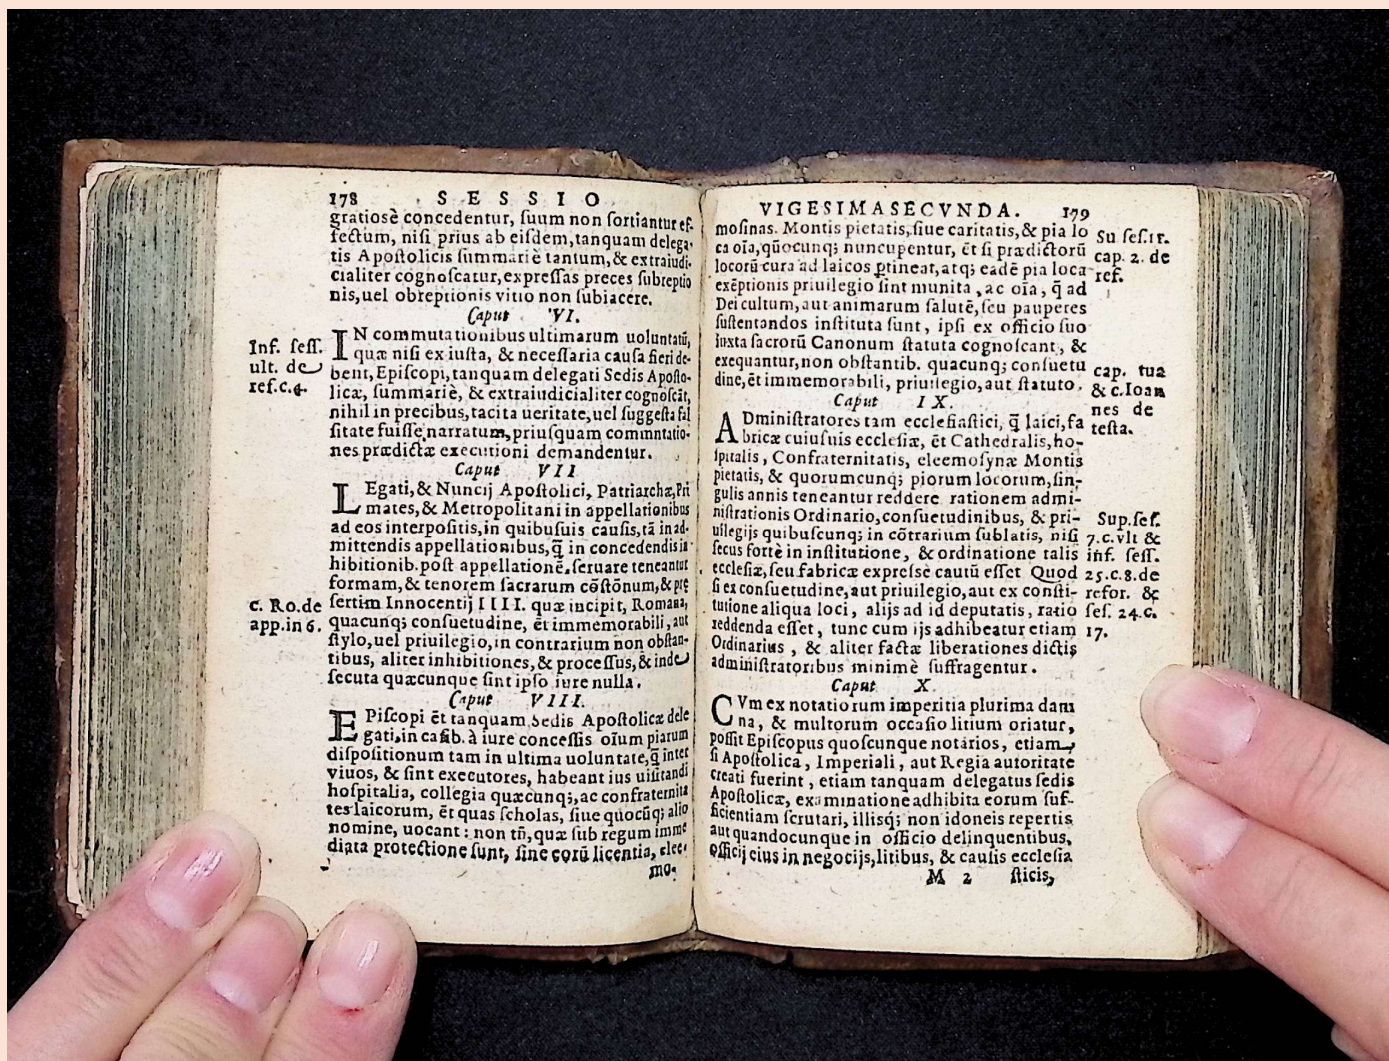 178 SESSIO
gratiosè concedentur, suum non sortiantur ef-
fectum, nisi prius ab eisdem, tanquam delega-
tis Apostolicis summariè tantum, & extraiudi-
cialiter cognoscatur, expressas preces subreptio
nis, uel obreptionis vitio non subiacere.
Caput VI.
IN commutationibus ultimarum uoluntatũ,
quæ nisi ex iusta, & necessaria causa fieri de-
bent, Episcopi, tanquam delegati Sedis Aposto-
licæ, summariè, & extraiudicialiter cognoscãt,
nihil in precibus, tacita ueritate, uel suggesta fal
sitate fuisse narratum, priusquam commntatio-
nes prædictæ executioni demandentur.
Inf. sess.
ult. de
ref.c.4.
Caput VII
LEgati, & Nuncij Apostolici, Patriarchæ, Pri
mates, & Metropolitani in appellationibus
ad eos interpositis, in quibusuis causis, tã in ad-
mittendis appellationibus, q̃ in concedendis in-
hibitionib. post appellationẽ, seruare teneantur
formam, & tenorem sacrarum cõstõnum, & præ
sertim Innocentij IIII. quæ incipit, Romana,
quacunq; consuetudine, ẽt immemorabili, aut
stylo, uel priuilegio, in contrarium non obstan-
tibus, aliter inhibitiones, & processus, & inde
secuta quæcunque sint ipso iure nulla.
c. Ro.de
app.in 6.
Caput VIII.
EPiscopi ẽt tanquam Sedis Apostolicæ dele
gati, in casib. à iure concessis oĩum piarum
dispositionum tam in ultima uoluntate, q̃ inter
viuos, & sint executores, habeant ius uisitandi
hospitalia, collegia quæcunq;, ac confraternita
tes laicorum, ẽt quas scholas, siue quocũq; alio
nomine, uocant: non tñ, quæ sub regum imme
diata protectione sunt, sine eorũ licentia, elee-
mo-
VIGESIMASECVNDA. 179
mosinas. Montis pietatis, siue caritatis, & pia lo
ca oĩa, quocunq; nuncupentur, ẽt si prædictorũ
locorũ cura ad laicos ꝑtineat, atq; eadẽ pia loca
exẽptionis priuilegio sint munita, ac oĩa, q̃ ad
Dei cultum, aut animarum salutẽ, seu pauperes
sustentandos instituta sunt, ipsi ex officio suo
iuxta sacrorũ Canonum statuta cognoscant, &
exequantur, non obstantib. quacunq; consuetu
dine, ẽt immemorabili, priuilegio, aut statuto.
Su ses.1r.
cap. 2. de
ref.
cap. tua
& c.Ioan
nes de
testa.
Caput IX.
ADministratores tam ecclesiastici, q̃ laici, fa
bricæ cuiusuis ecclesiæ, ẽt Cathedralis, ho-
spitalis, Confraternitatis, eleemosynæ Montis
pietatis, & quorumcunq; piorum locorum, sin-
gulis annis teneantur reddere rationem admi-
nistrationis Ordinario, consuetudinibus, & pri-
uilegijs quibuscunq; in cõtrarium sublatis, nisi
secus fortè in institutione, & ordinatione talis
ecclesiæ, seu fabricæ expresse cautũ esset Quod
si ex consuetudine, aut priuilegio, aut ex consti-
tutione aliqua loci, alijs ad id deputatis, ratio
reddenda esset, tunc cum ijs adhibeatur etiam
Ordinarius, & aliter factæ liberationes dictis
administratoribus minimè suffragentur.
Sup.ses.
7.c.vlt &
inf. sess.
25.c.8.de
refor. &
ses. 24.c.
17.
Caput X.
CVm ex notatiorum imperitia plurima dam
na, & multorum occasio litium oriatur,
possit Episcopus quoscunque notarios, etiam
si Apostolica, Imperiali, aut Regia autoritate
creati fuerint, etiam tanquam delegatus sedis
Apostolicæ, examinatione adhibita eorum suf-
ficientiam scrutari, illisq; non idoneis repertis
aut quandocunque in officio delinquentibus,
officij eius in negocijs, litibus, & causis ecclesia
M 2 sticis,